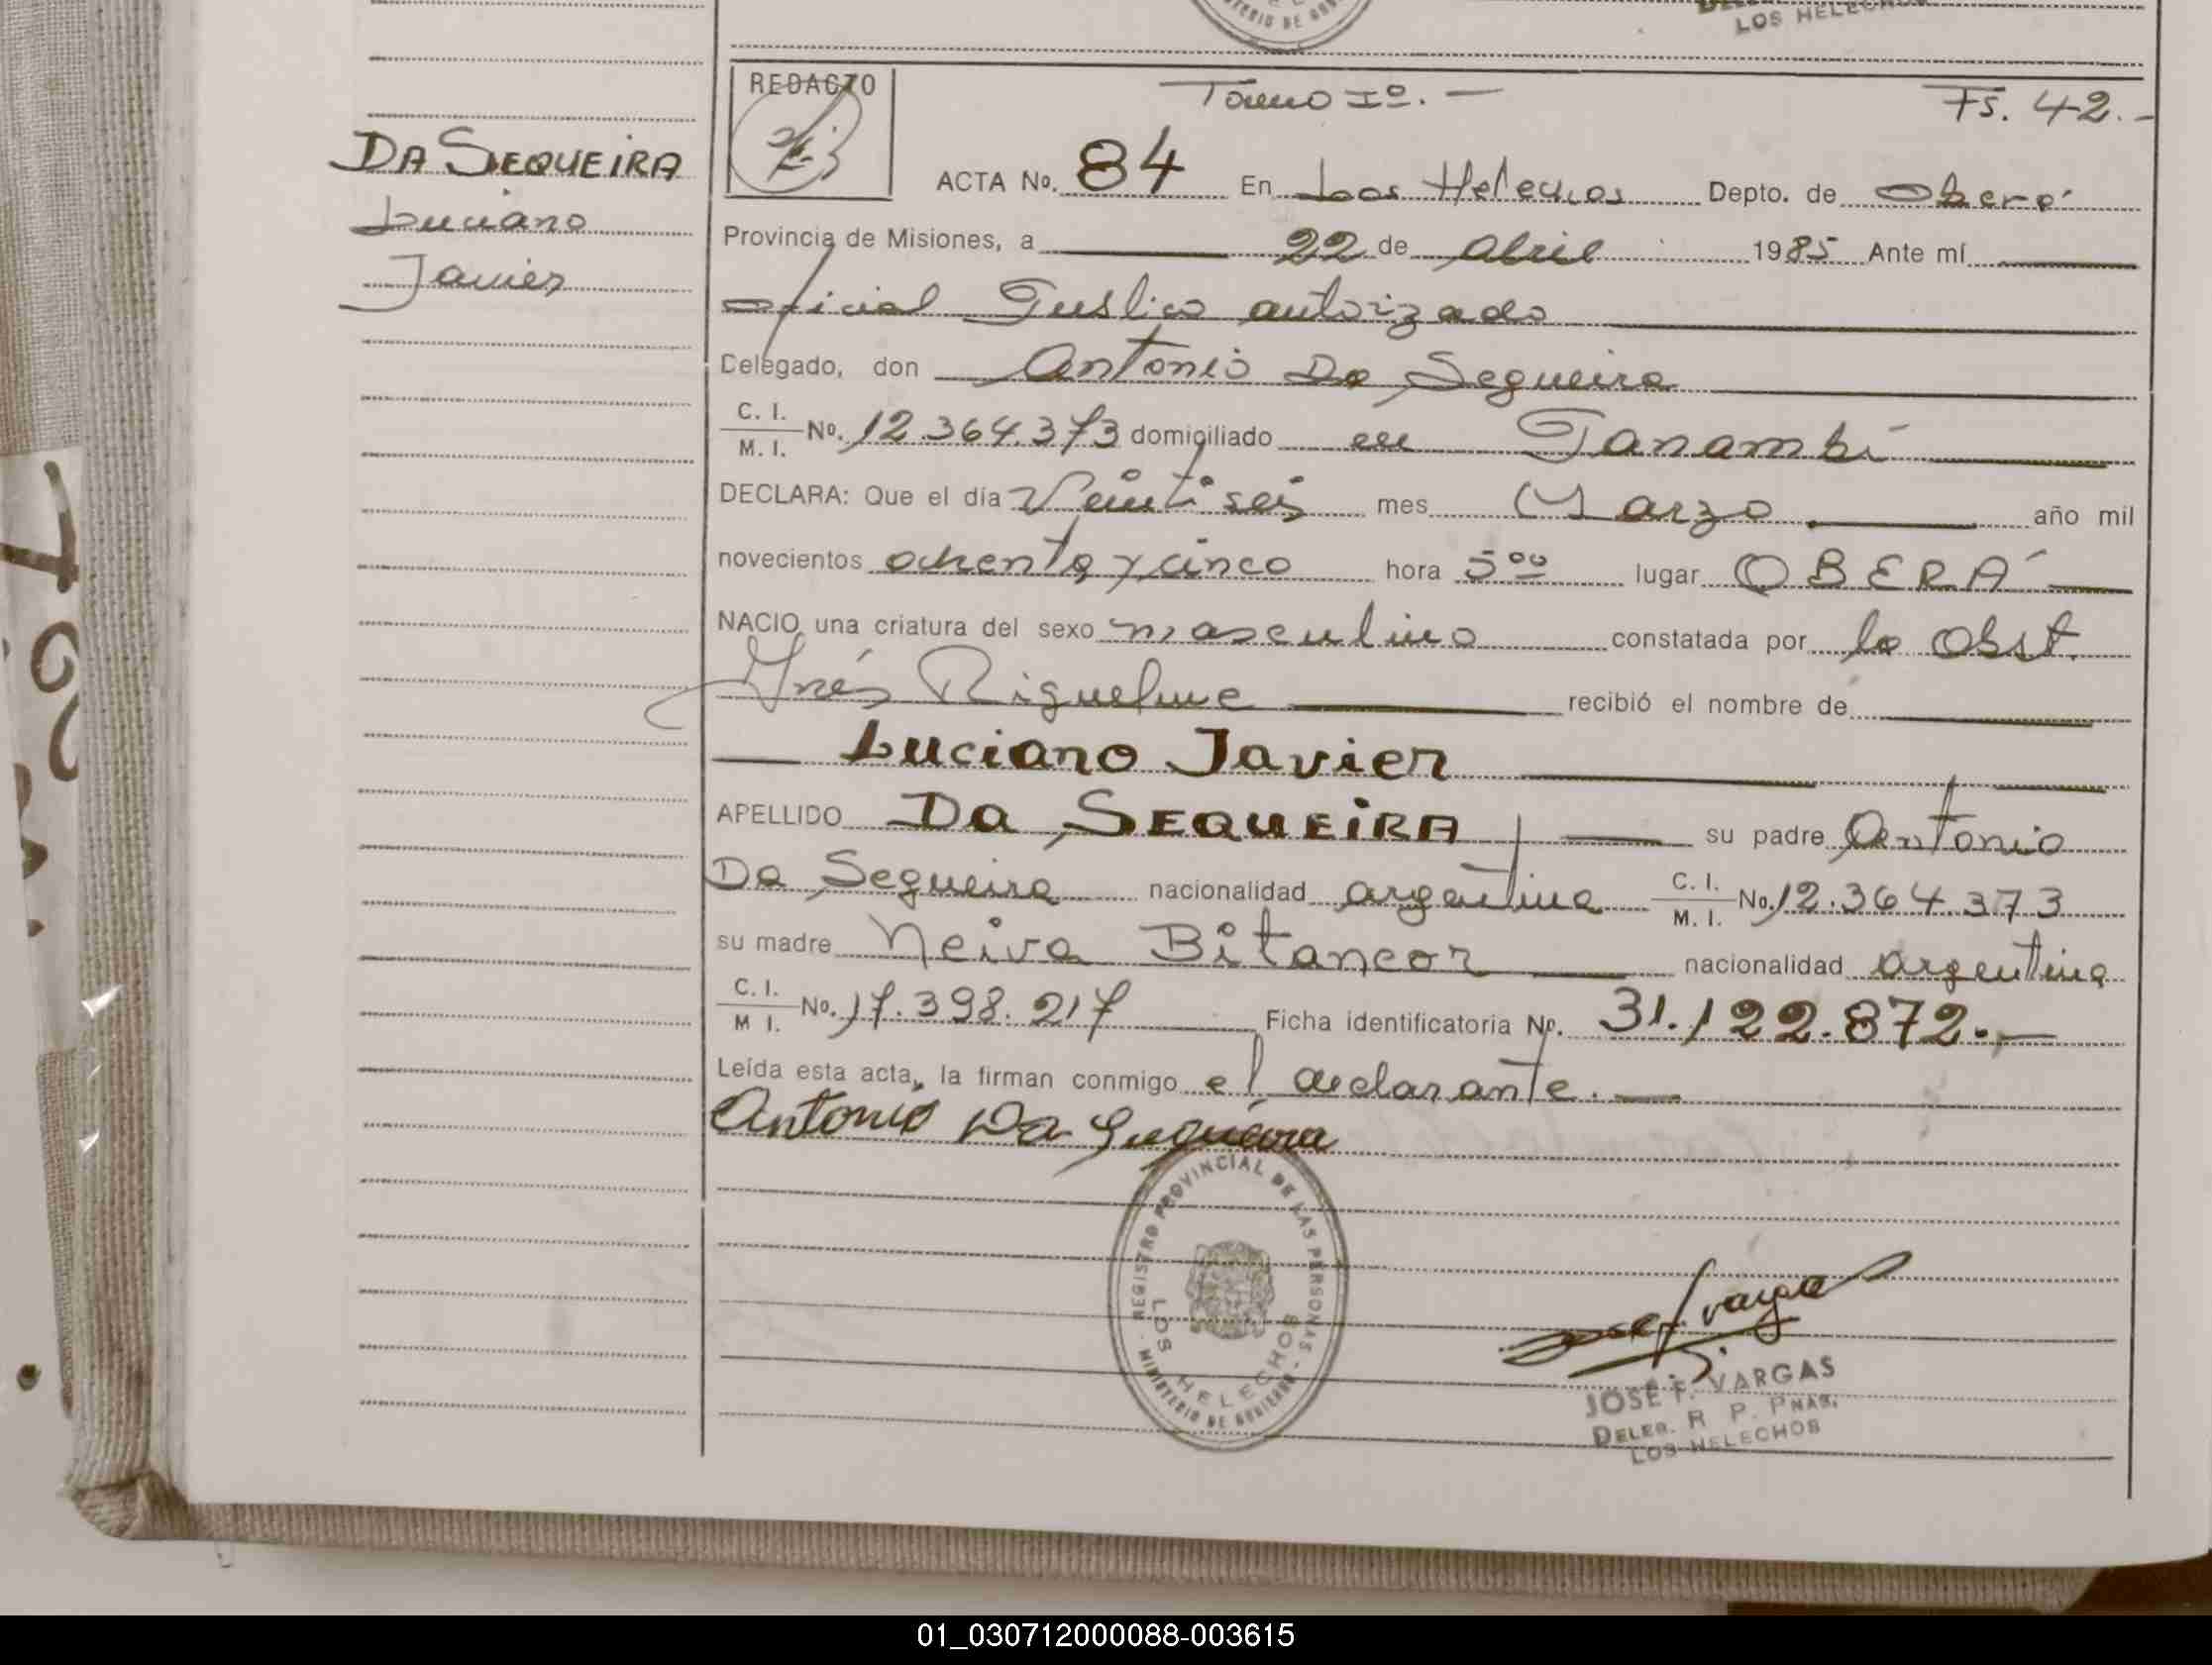 MINISTERIO DE GOB
LOS HELECHOS
REDACTO
Tomo Iº.-
Fs. 42.-
DA SEQUEIRA
Luciano
Javier
ACTA No. 84 En Los Helechos Depto. de Oberá
Provincia de Misiones, a 22 de Abril 1985 Ante mí
oficial Publico autorizado
Delegado, don Antonio Da Sequeira
C. I. M. I. No. 12.364.373 domiciliado en Panambí
DECLARA: Que el día Veintiseis mes Marzo año mil
novecientos ochenta y cinco hora 5ºº lugar OBERÁ
NACIO una criatura del sexo masculino constatada por la Obst.
Inés Riquelme recibió el nombre de
Luciano Javier
APELLIDO Da SEQUEIRA su padre Antonio
Da Sequeira nacionalidad argentina C. I. M. I. No. 12.364.373
su madre Neiva Bitancor nacionalidad argentina
C. I. M I. No. 17.398.217 Ficha identificatoria No. 31.122.872.-
Leída esta acta, la firman conmigo el declarante.
Antonio Da Sequeira
REGISTRO PROVINCIAL DE LAS PERSONAS
LOS HELECHOS
MINISTERIO DE GOBIERNO
Jose F Vargas
JOSE F. VARGAS
DELEG. R. P. PNAS.
LOS HELECHOS
01_030712000088-003615